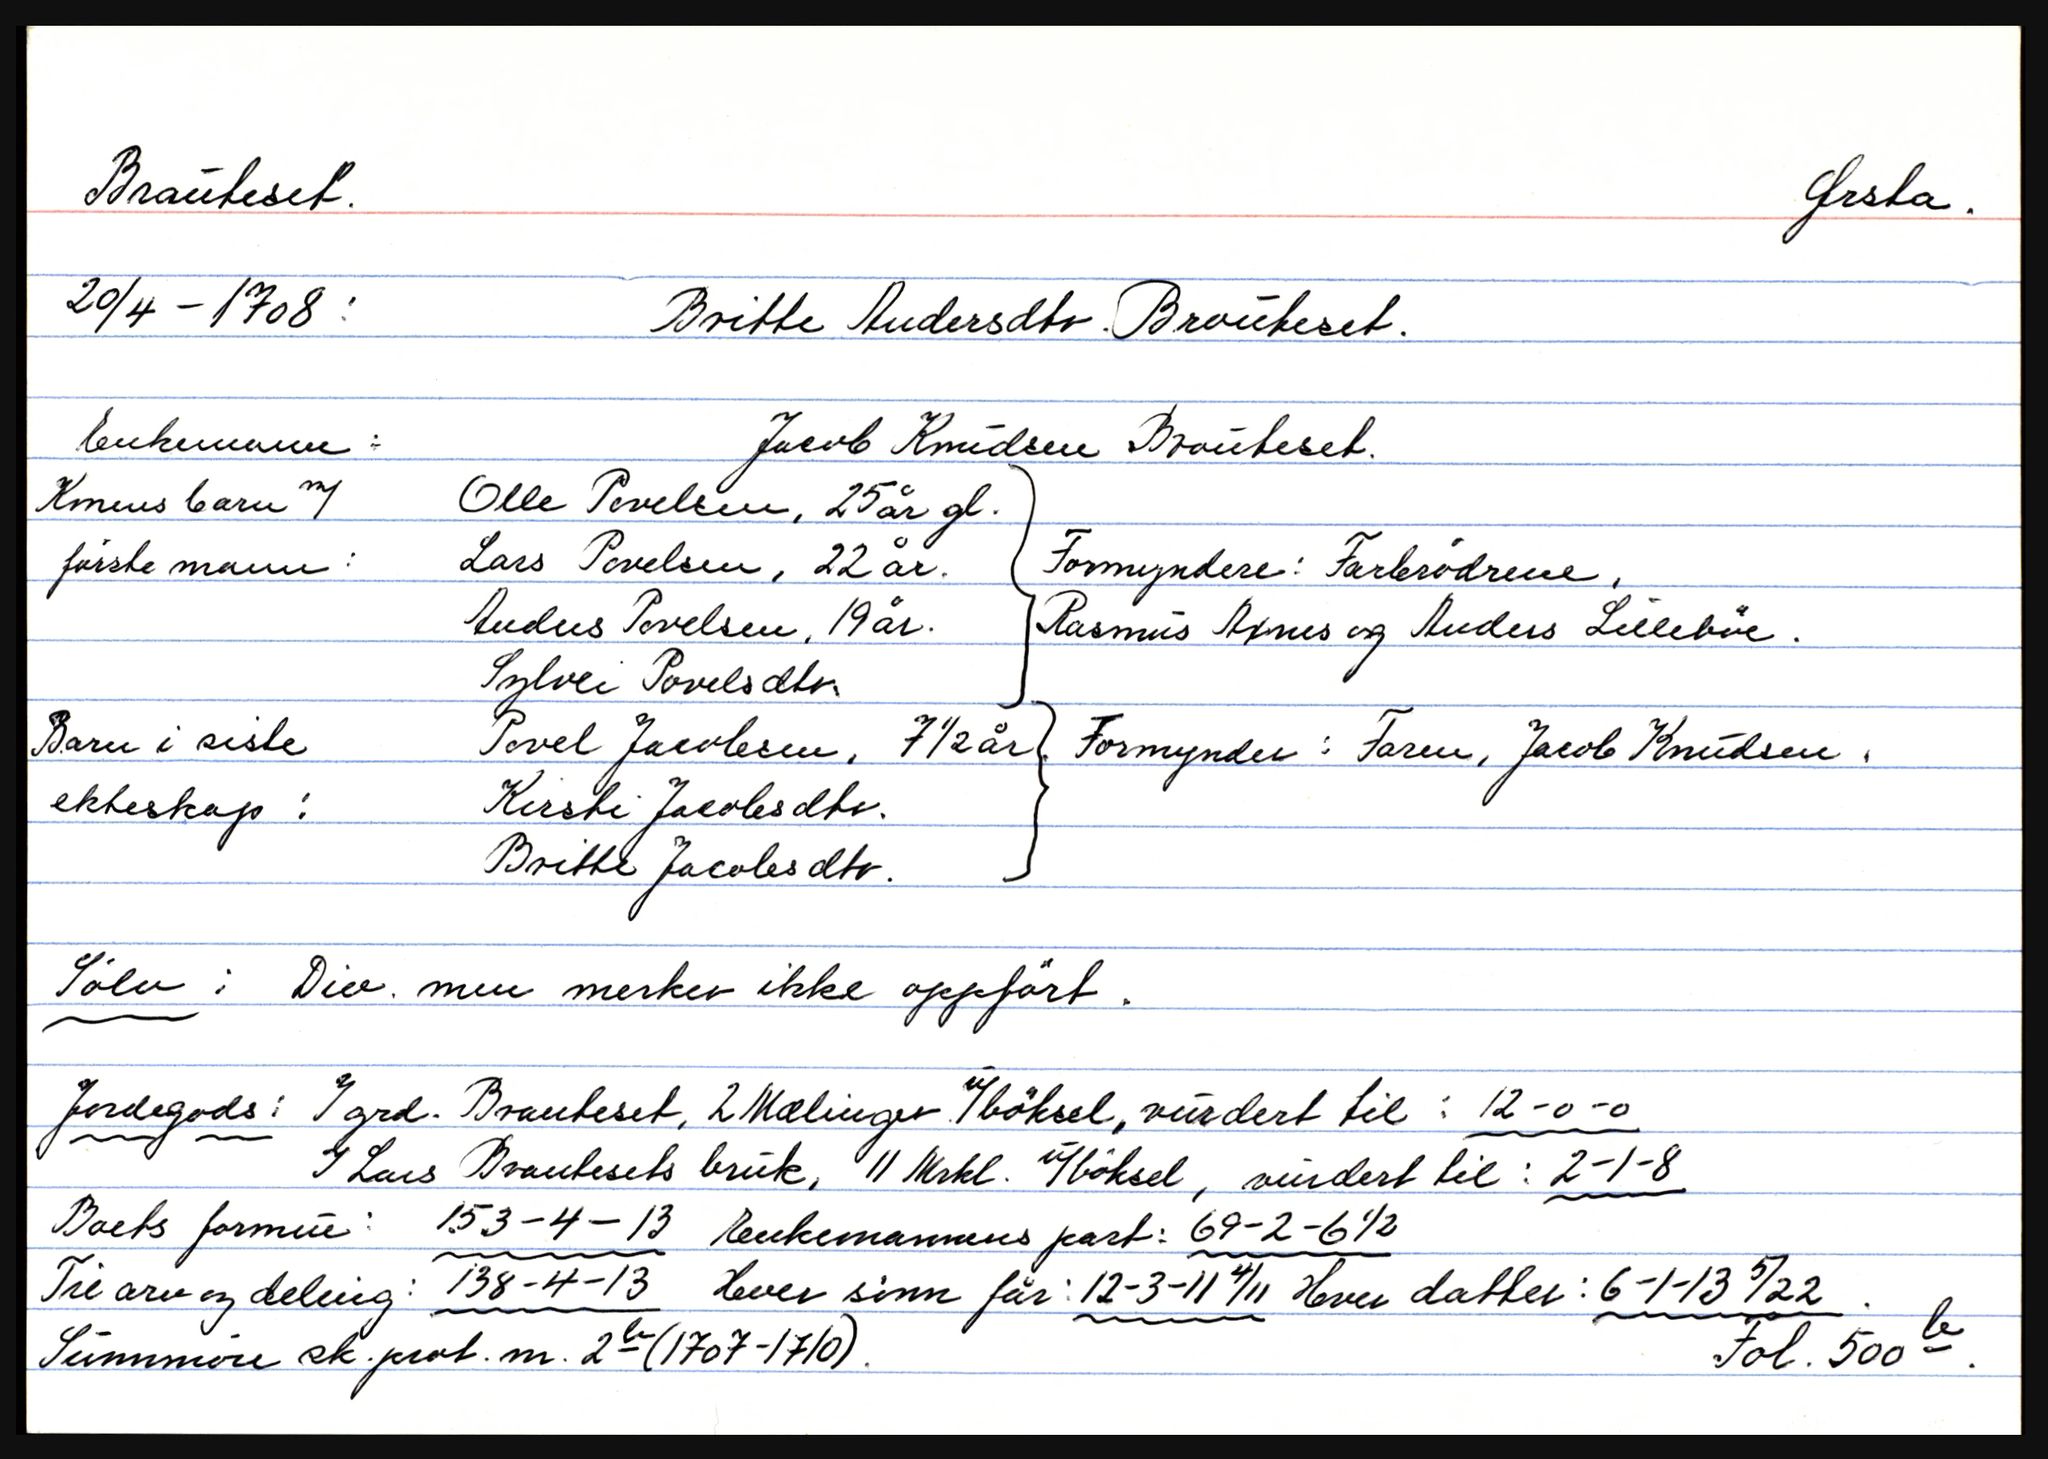 Brauteset. Ørsta.
20/4 - 1708: Britte Andersdtr. Brauteset.
Enkemann: Jacob Knudsen Brauteset.
Konens barn m/ Olle Povelsen, 25 år gl.
förste mann: Lars Povelsen, 22 år. Formyndere: Farbrödrene,
Anders Povelsen, 19 år. Rasmus Axnes og Anders Lilleböe.
Sylvei Povelsdtr.
Barn i siste Povel Jacobsen, 7 1/2 år. Formynder: Faren, Jacob Knudsen.
ekteskap: Kirsti Jacobsdtr.
Britte Jacobsdtr.
Sölv: Div. men merker ikke oppfört.
Jordegods: I grd. Brauteset, 2 Mælinger u/böksel, vurdert til: 12-0-0
I Lars Brautesets bruk, 11 Mrkl. u/böksel, vurdert til: 2-1-8
Boets formue: 153-4-13 Enkemannens part: 69-2-6 1/2
Til arv og deling: 138-4-13 Hver sönn får: 12-3-11 4/11 Hver datter: 6-1-13 5/22.
Sunnmöre sk. prot. nr. 2b (1707-1710). Fol. 500 b.